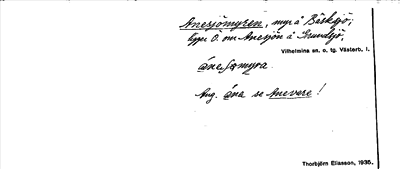 Anesjömyren, myr å Bäsksjö;
ligger Ö. om Anesjön å Grundsjö,
Vilhelmina sn. o. tg. Västerb. l.
åne sjømyra
Ang. åna se Anevare!
Thorbjörn Eliasson, 1935.